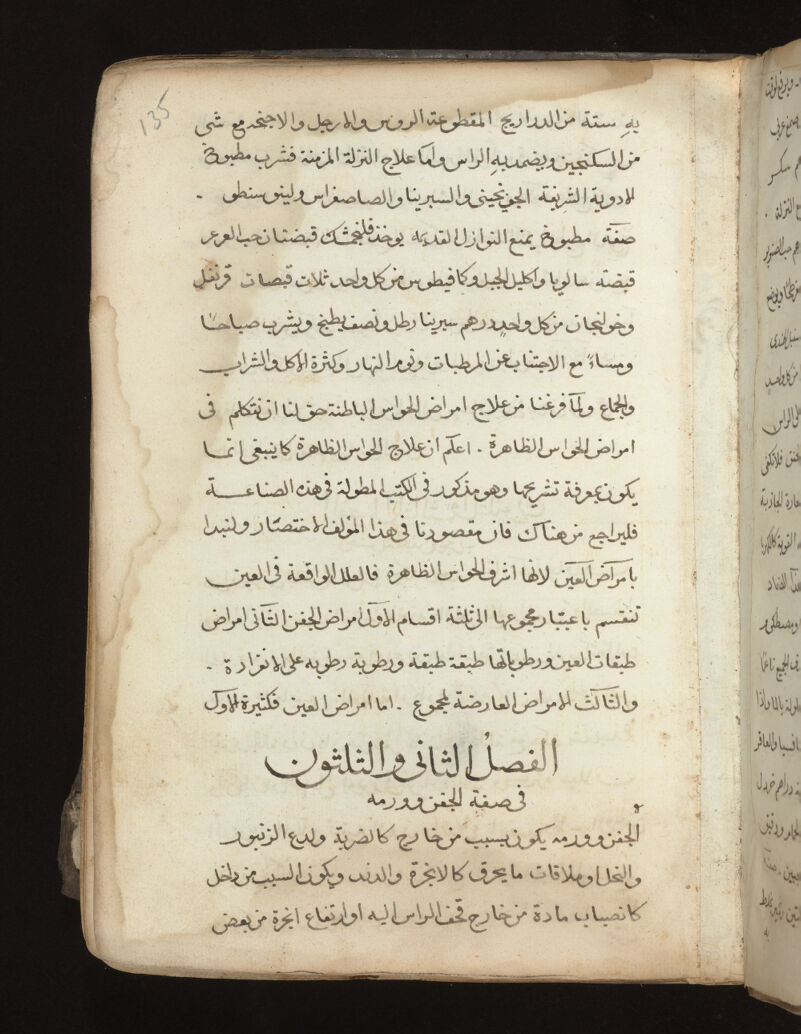 135
به ستة من الدراريح المقطوعة الروس والارجل والاجنحه مع شى
من السكنجبين ويضمد به الراس واما علاج النزلة المزمنة فشرب مطبوخ
الادوية الشريفة الجوبجينى والسبرينا والصاصفراس ولينو سنطو .
صفة مطبوخ يمنع النوازل القديمه يوخذ فلنجشك قبضتان حب العرعر
قبضته سالويا واكليل الجبل وكمافيطوس من كل واحد ثلاث قبصات قرنفل
وخولنجان من كل واحد درهم سبرينا رطل ونصف يطبخ ويشرب صباحًا
ومساءً مع الاجتناب عن المرطبات ونوم النهار وكثرة الاكل والشراب
والجماع ولما فرغنا من علاج امراض الحواس الباطنة حق لنا ان نتكلم فى
امراض الحواس الظاهرة . اعلم ان علاج الحواس الظاهرة كما ينبغى انما
يكون بمعرفة تشريحها وهو مذكور فى الكتب المطولة فى هذه الصناعة
فليراجع من هناك فان مقصودنا فى هذا المؤلف الاختصار ولنبدا
بامراض العين لانها اشرف الحواس الظاهرة فالعلل الواقعة فى العين
تنقسم باعتبار مجموعها الى ثلثة اقسام الاول امراض الجفن الثانى امراض
طبقات العين ورطوباتها طبقة طبقة ورطوبة رطوبه على الانفرادة .
والثالث الامراض العارضة للمجموع . اما امراض العين فكثيرة الاول
الفصل الثانى والثلثون
فى صفة الجفن وورمه
الجفن وورمه يكون بسبب من خارج كالضربة ولدع الزنبور
والنحل او ملاقات ما يحرق كالابخرة والدند ويكون السبب من داخل
كانصباب مادة من خارج قحف الراس اليه او ارتفاع ابخرة من بعض